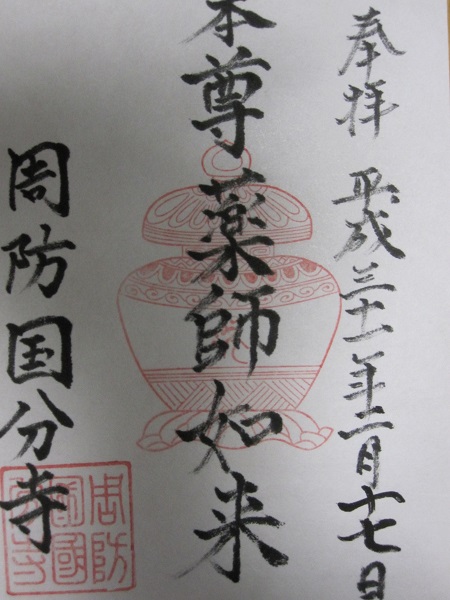 奉拝 平成三十一年二月十七日
本尊薬師如来
周防国分寺
周防國分寺